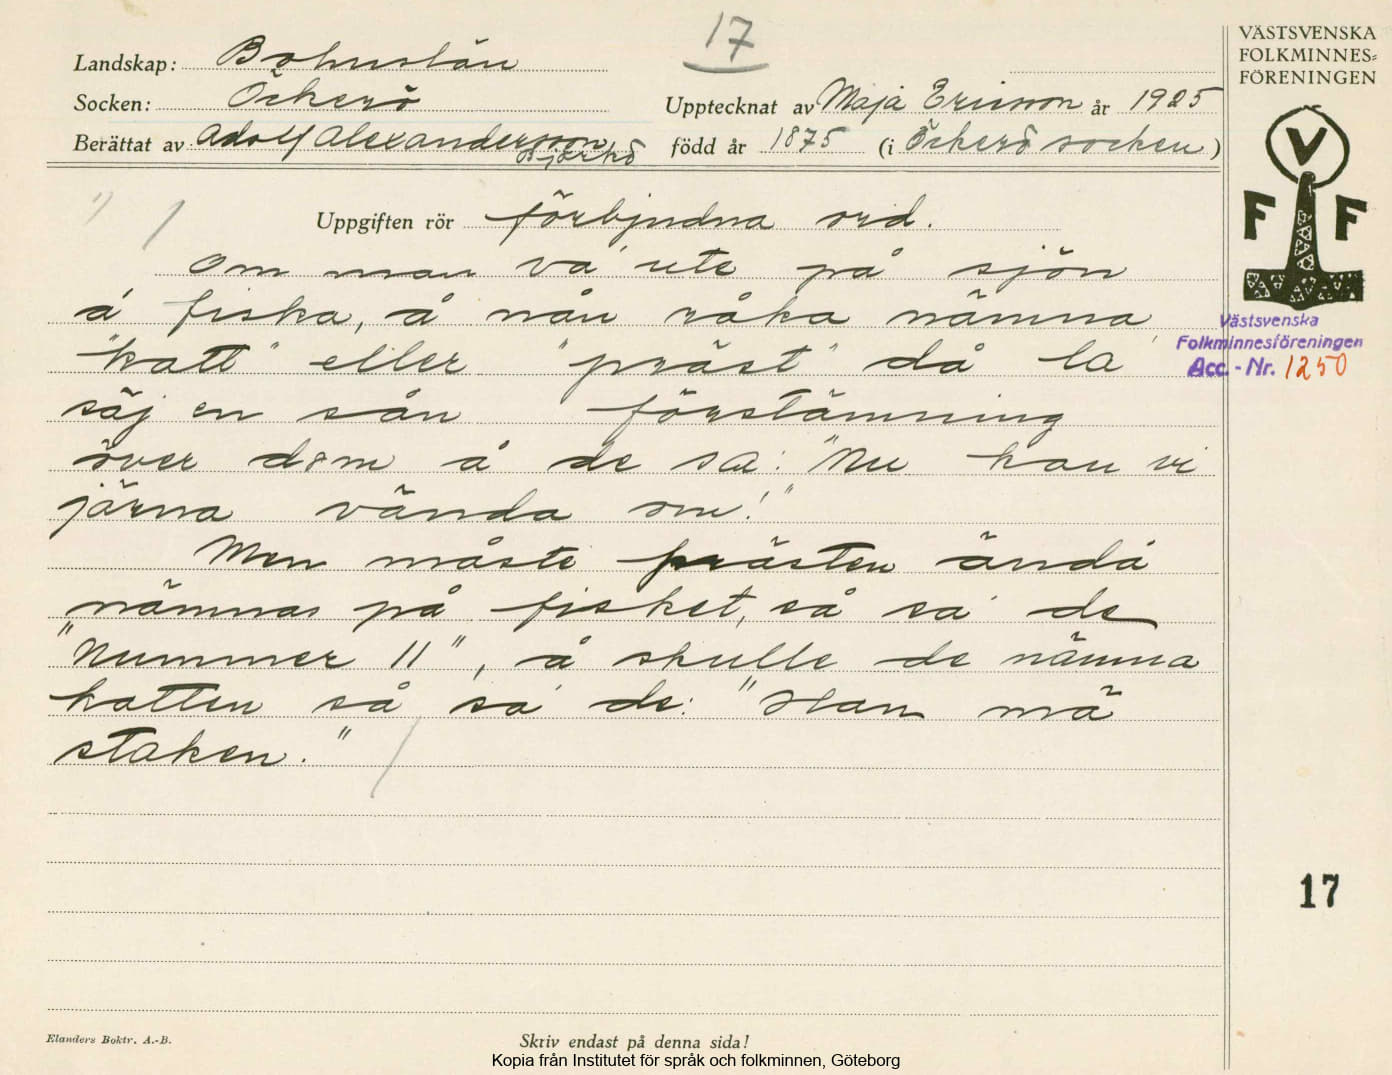 17
VÄSTSVENSKA
FOLKMINNES=
FÖRENINGEN
Landskap: Bohuslän
Socken: Öckerö
Upptecknat av Maja Ericson år 1925
Berättat av Adolf Alexandersson
Björkö
född år 1875 (i Öckerö socken)
V
F F
Uppgiften rör förbjudna ord.
Om man va' ute på sjön
å fiska, å nån råka nämna
"katt" eller "präst" då la'
säj en sån förstämning
över dom å de sa: "Nu kan vi
järna vända om!"
Men måste prästen ändå
nämnas på fisket, så sa' de
"Nummer 11", å skulle de nämna
katten så sa' de: "Han mä
staken."
Västsvenska
Folkminnesföreningen
Acc.-Nr. 1250
17
Elanders Boktr. A.-B.
Skriv endast på denna sida!
Kopia från Institutet för språk och folkminnen, Göteborg